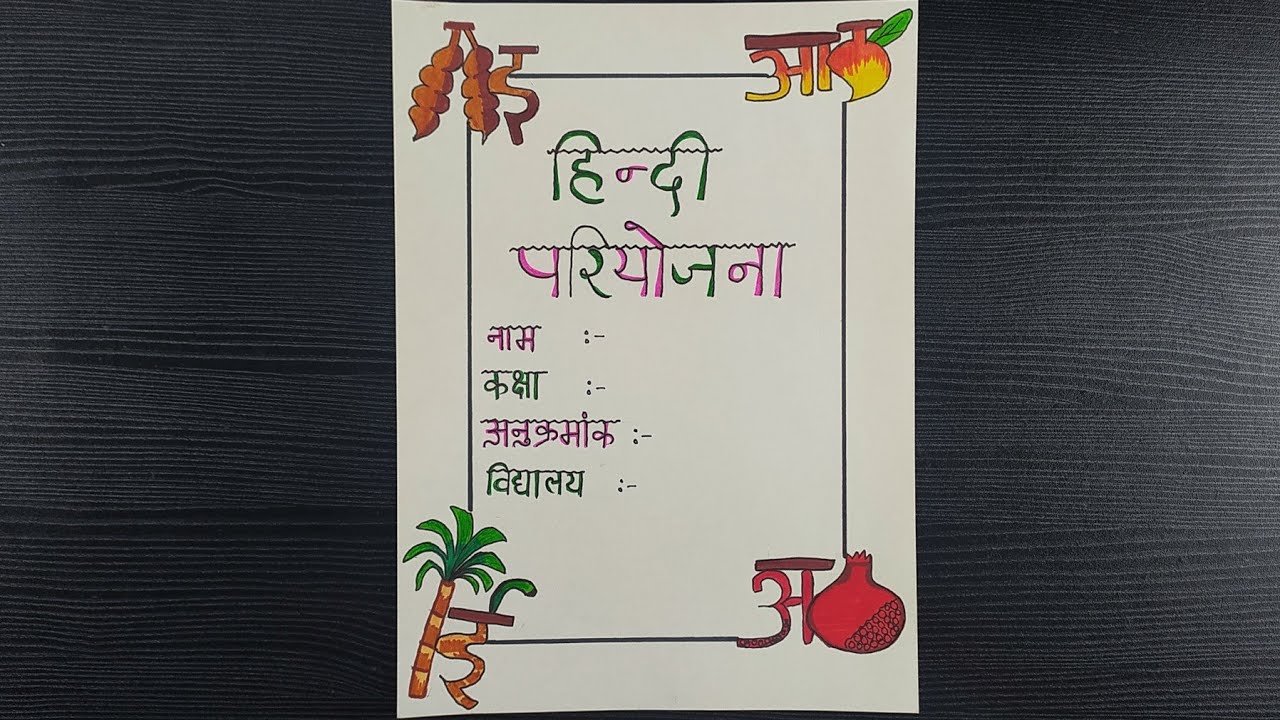 इ
आ
हिन्दी
परियोजना
नाम :-
कक्षा :-
अनुक्रमांक :-
विद्यालय :-
ई
अ